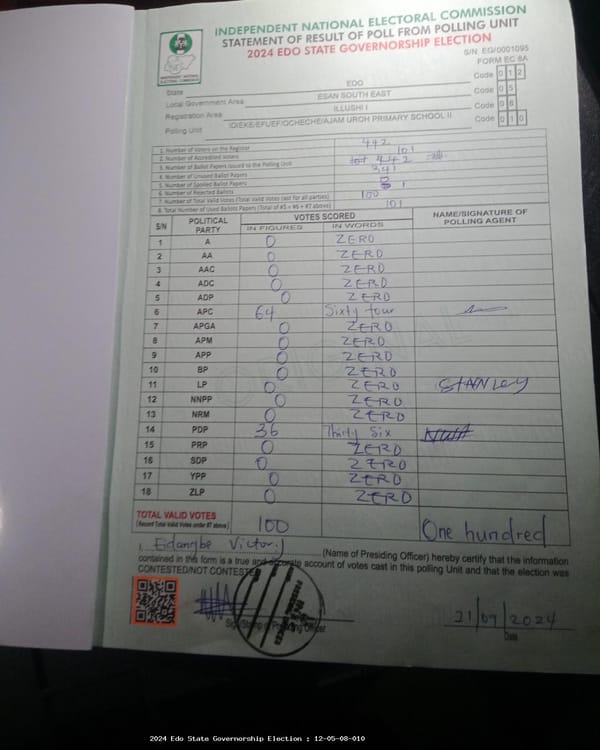 INDEPENDENT NATIONAL ELECTORAL COMMISSION
STATEMENT OF RESULT OF POLL FROM POLLING UNIT
2024 EDO STATE GOVERNORSHIP ELECTION
S/N: EG/0001095
FORM EC 8A
INDEPENDENT NATIONAL ELECTORAL COMMISSION
State EDO Code 0 1 2
Local Government Area ESAN SOUTH EAST Code 0 5
Registration Area ILLUSHI I Code 0 8
Polling Unit IDIEKE/EFUEF/OCHECHE/AJAM UROH PRIMARY SCHOOL II Code 0 1 0
1. Number of Voters on the Register 442
2. Number of Accredited Voters 101
3. Number of Ballot Papers Issued to the Polling Unit 442
4. Number of Unused Ballot Papers 341
5. Number of Spoiled Ballot Papers 0
6. Number of Rejected Ballots 1
7. Number of Total Valid Votes (Total Valid Votes cast for all parties) 100
8. Total Number of Used Ballots Papers (Total of #5 + #6 + #7 above) 101
S/N POLITICAL PARTY VOTES SCORED NAME/SIGNATURE OF POLLING AGENT
IN FIGURES IN WORDS
1 A 0 ZERO
2 AA 0 ZERO
3 AAC 0 ZERO
4 ADC 0 ZERO
5 ADP 0 ZERO
6 APC 64 Sixty four
7 APGA 0 ZERO
8 APM 0 ZERO
9 APP 0 ZERO
10 BP 0 ZERO
11 LP 0 ZERO STANLEY
12 NNPP 0 ZERO
13 NRM 0 ZERO
14 PDP 36 Thirty Six
15 PRP 0 ZERO
16 SDP 0 ZERO
17 YPP 0 ZERO
18 ZLP 0 ZERO
TOTAL VALID VOTES
(Record Total Valid Votes under #7 above) 100 One hundred
I, Eidangbe Victory (Name of Presiding Officer) hereby certify that the information
contained in this form is a true and accurate account of votes cast in this polling Unit and that the election was
CONTESTED/NOT CONTESTED
21/09/2024
Date
2024 Edo State Governorship Election : 12-05-08-010